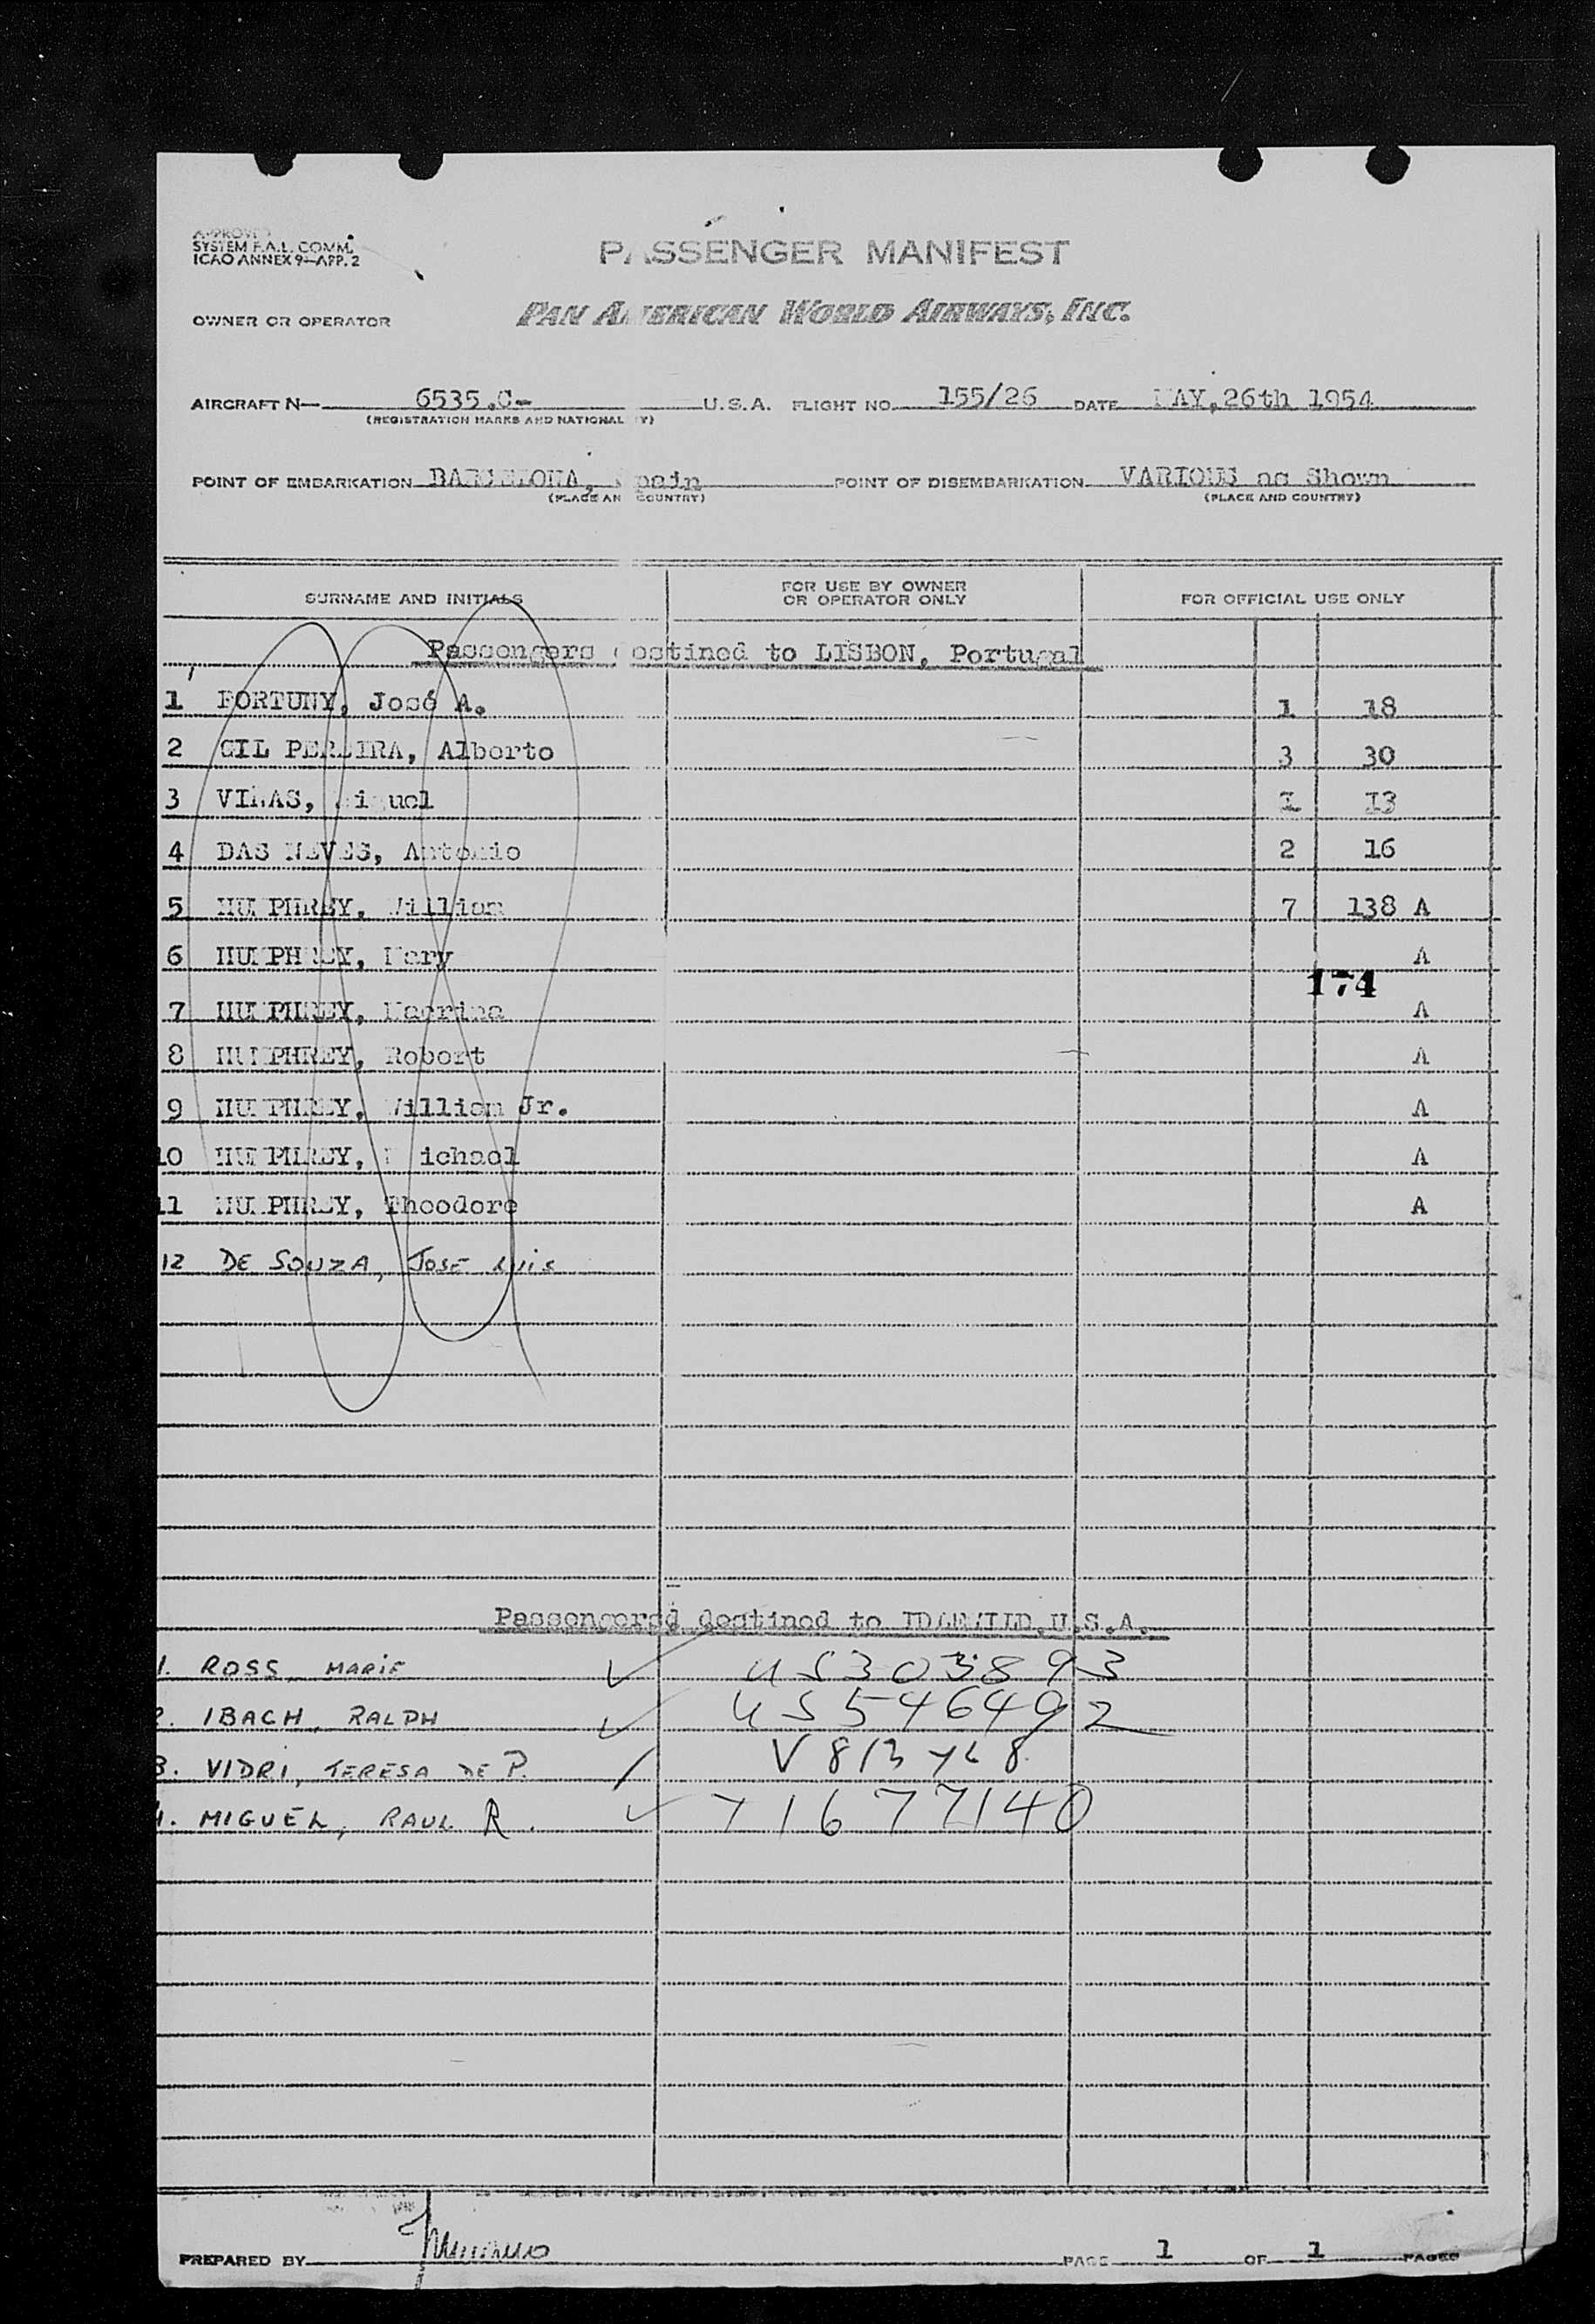 APPROVED
SYSTEM F.A.L. COMM.
ICAO ANNEX 9—APP. 2
PASSENGER MANIFEST
OWNER OR OPERATOR PAN AMERICAN WORLD AIRWAYS, INC.
AIRCRAFT N— 6535.C- U.S.A. FLIGHT NO. 155/26 DATE MAY,26th 1954
(REGISTRATION MARKS AND NATIONALITY)
POINT OF EMBARKATION BARCELONA, Spain POINT OF DISEMBARKATION VARIOUS as Shown
(PLACE AND COUNTRY) (PLACE AND COUNTRY)
SURNAME AND INITIALS FOR USE BY OWNER OR OPERATOR ONLY FOR OFFICIAL USE ONLY
Passengers destined to LISBON, Portugal
1 FORTUNY, José A. 1 18
2 GIL PEREIRA, Alberto 3 30
3 VIÑAS, Miguel 1 13
4 DAS NEVES, Antonio 2 16
5 HUMPHREY, William 7 138 A
6 HUMPHREY, Mary A
174
7 HUMPHREY, A
8 HUMPHREY, Robert A
9 HUMPHREY, William Jr. A
10 HUMPHREY, Michael A
11 HUMPHREY, Theodore A
12 DE SOUZA, JOSE LUIS
Passengers destined to U.S.A.
1. ROSS, MARIE ✓ US303893
2. IBACH, RALPH ✓ US546492
3. VIDRI, TERESA DE P. /
4. MIGUEL, RAUL R. ✓ 71677140
PREPARED BY PAGE 1 OF 1 PAGES